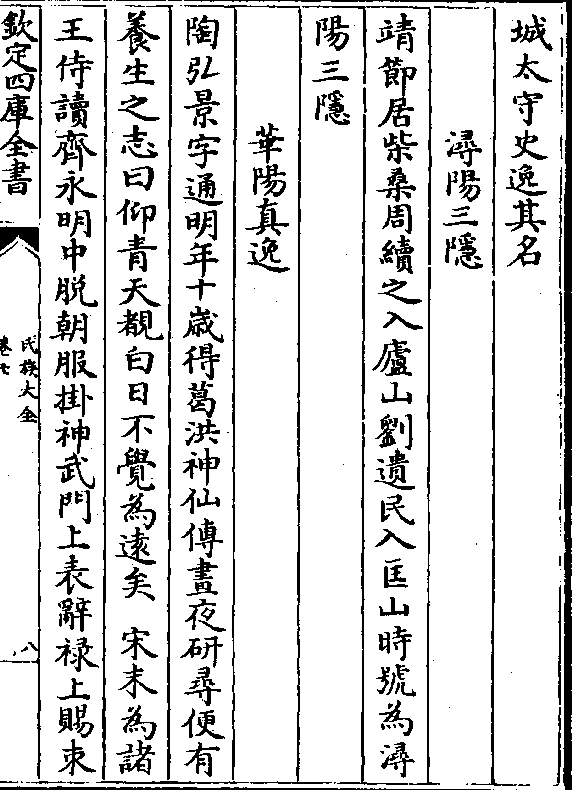 城太守史逸其名
潯陽三隱
靖節居柴桑周續之入廬山劉遺民入匡山時號為潯
陽三隱
華陽真逸
陶弘景字通明年十歳得葛洪神仙傳晝夜研尋便有
養生之志曰仰青天覩白日不覺為逺矣 宋末為諸
王侍讀齊永明中脱朝服掛神武門上表辭禄上賜束
欽定四庫全書
氏族大全
卷七
八